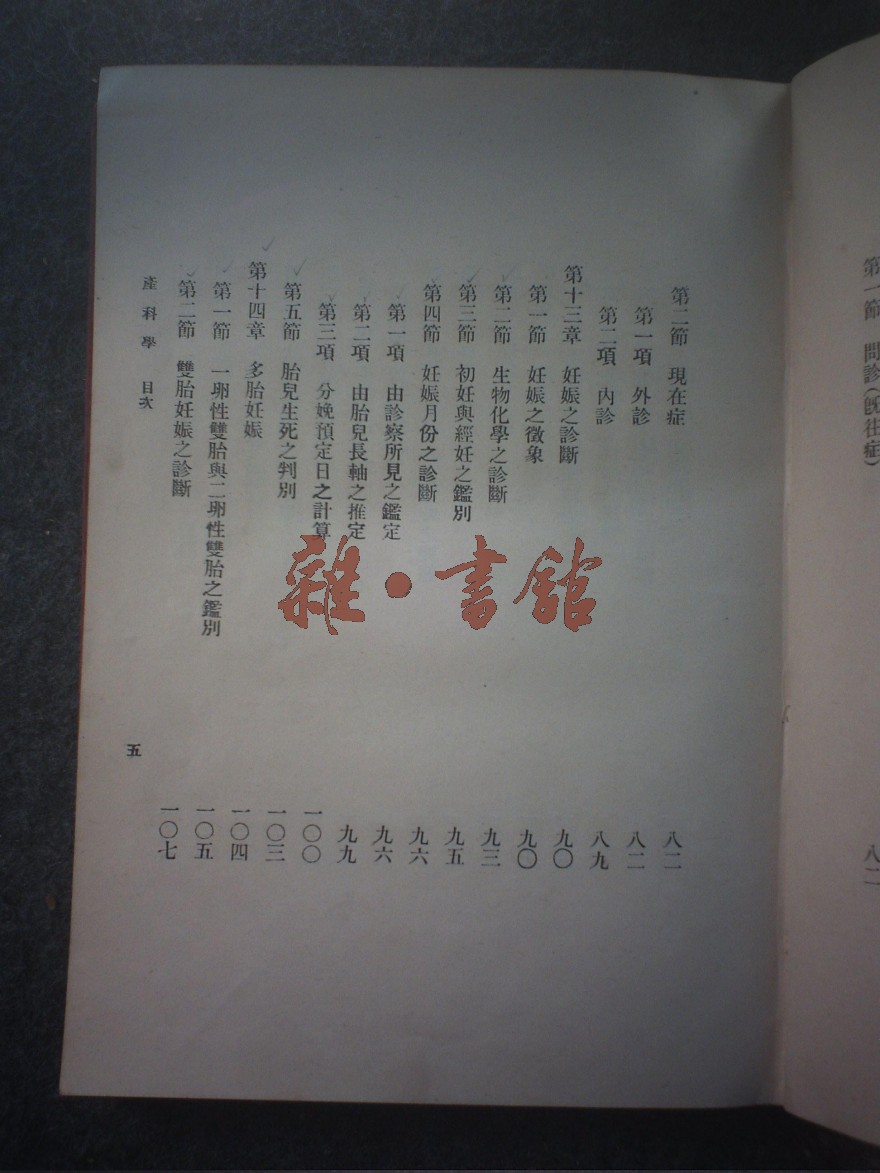 第一節　問診(既往症)　八二
第二節　現在症　八二
第一項　外診　八二
第二項　內診　八九
第十三章　妊娠之診斷　九〇
第一節　妊娠之徵象　九〇
第二節　生物化學之診斷　九三
第三節　初妊與經妊之鑑別　九五
第四節　妊娠月份之診斷　九六
第一項　由診察所見之鑑定　九六
第二項　由胎兒長軸之推定　九九
第三項　分娩預定日之計算　一〇〇
第五節　胎兒生死之判別　一〇三
第十四章　多胎妊娠　一〇四
第一節　一卵性雙胎與二卵性雙胎之鑑別　一〇五
第二節　雙胎妊娠之診斷　一〇七
產科學　目次　五
雜·書館